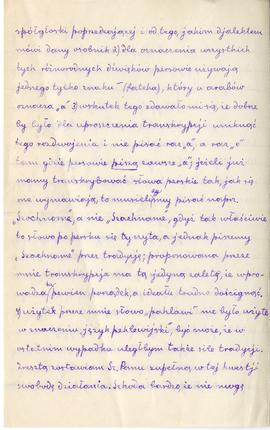 spółgłoski poprzedzającej i od tego, jakim djalektem
mówi dany osobnik 2) dla oznaczenia wszystkich
tych różnorodnych dźwięków persowie używają
jednego tylko znaku (fatcha), który u arabów
oznacza „a" 3) wskutek tego zdawało mi się, że dobrze
by było dla uproszczenia transkrypcji uniknąć
tego rozdwojenia i nie pisać raz „a", a raz „e"
tam gdzie persowie piszą zawsze „a"; jeżeli już
mamy transkrybować słowa perskie tak, jak się
one wymawiają, to musielibyśmy pisać napr.
Szochnome, a nie „Szachname", gdyż tak właściwie
to słowo po persku się czyta, a jednak piszemy
„Szachname" przez tradycję; proponowana przeze
mnie transkrypcja ma tę jedyną zaletę, że wpro-
wadza pewien porządek, a ideału trudno doścignąć.
Użyte przeze mnie słowo „pahlawi" nie było użyte
w znaczeniu „język pehlewijski", być może, że w
ostatnim wypadku uległbym także sile tradycji.
Zresztą zostawiam Sz. Panu zupełną w tej kwestji
swobodę działania. Szkoda bardzo, że nie mogę